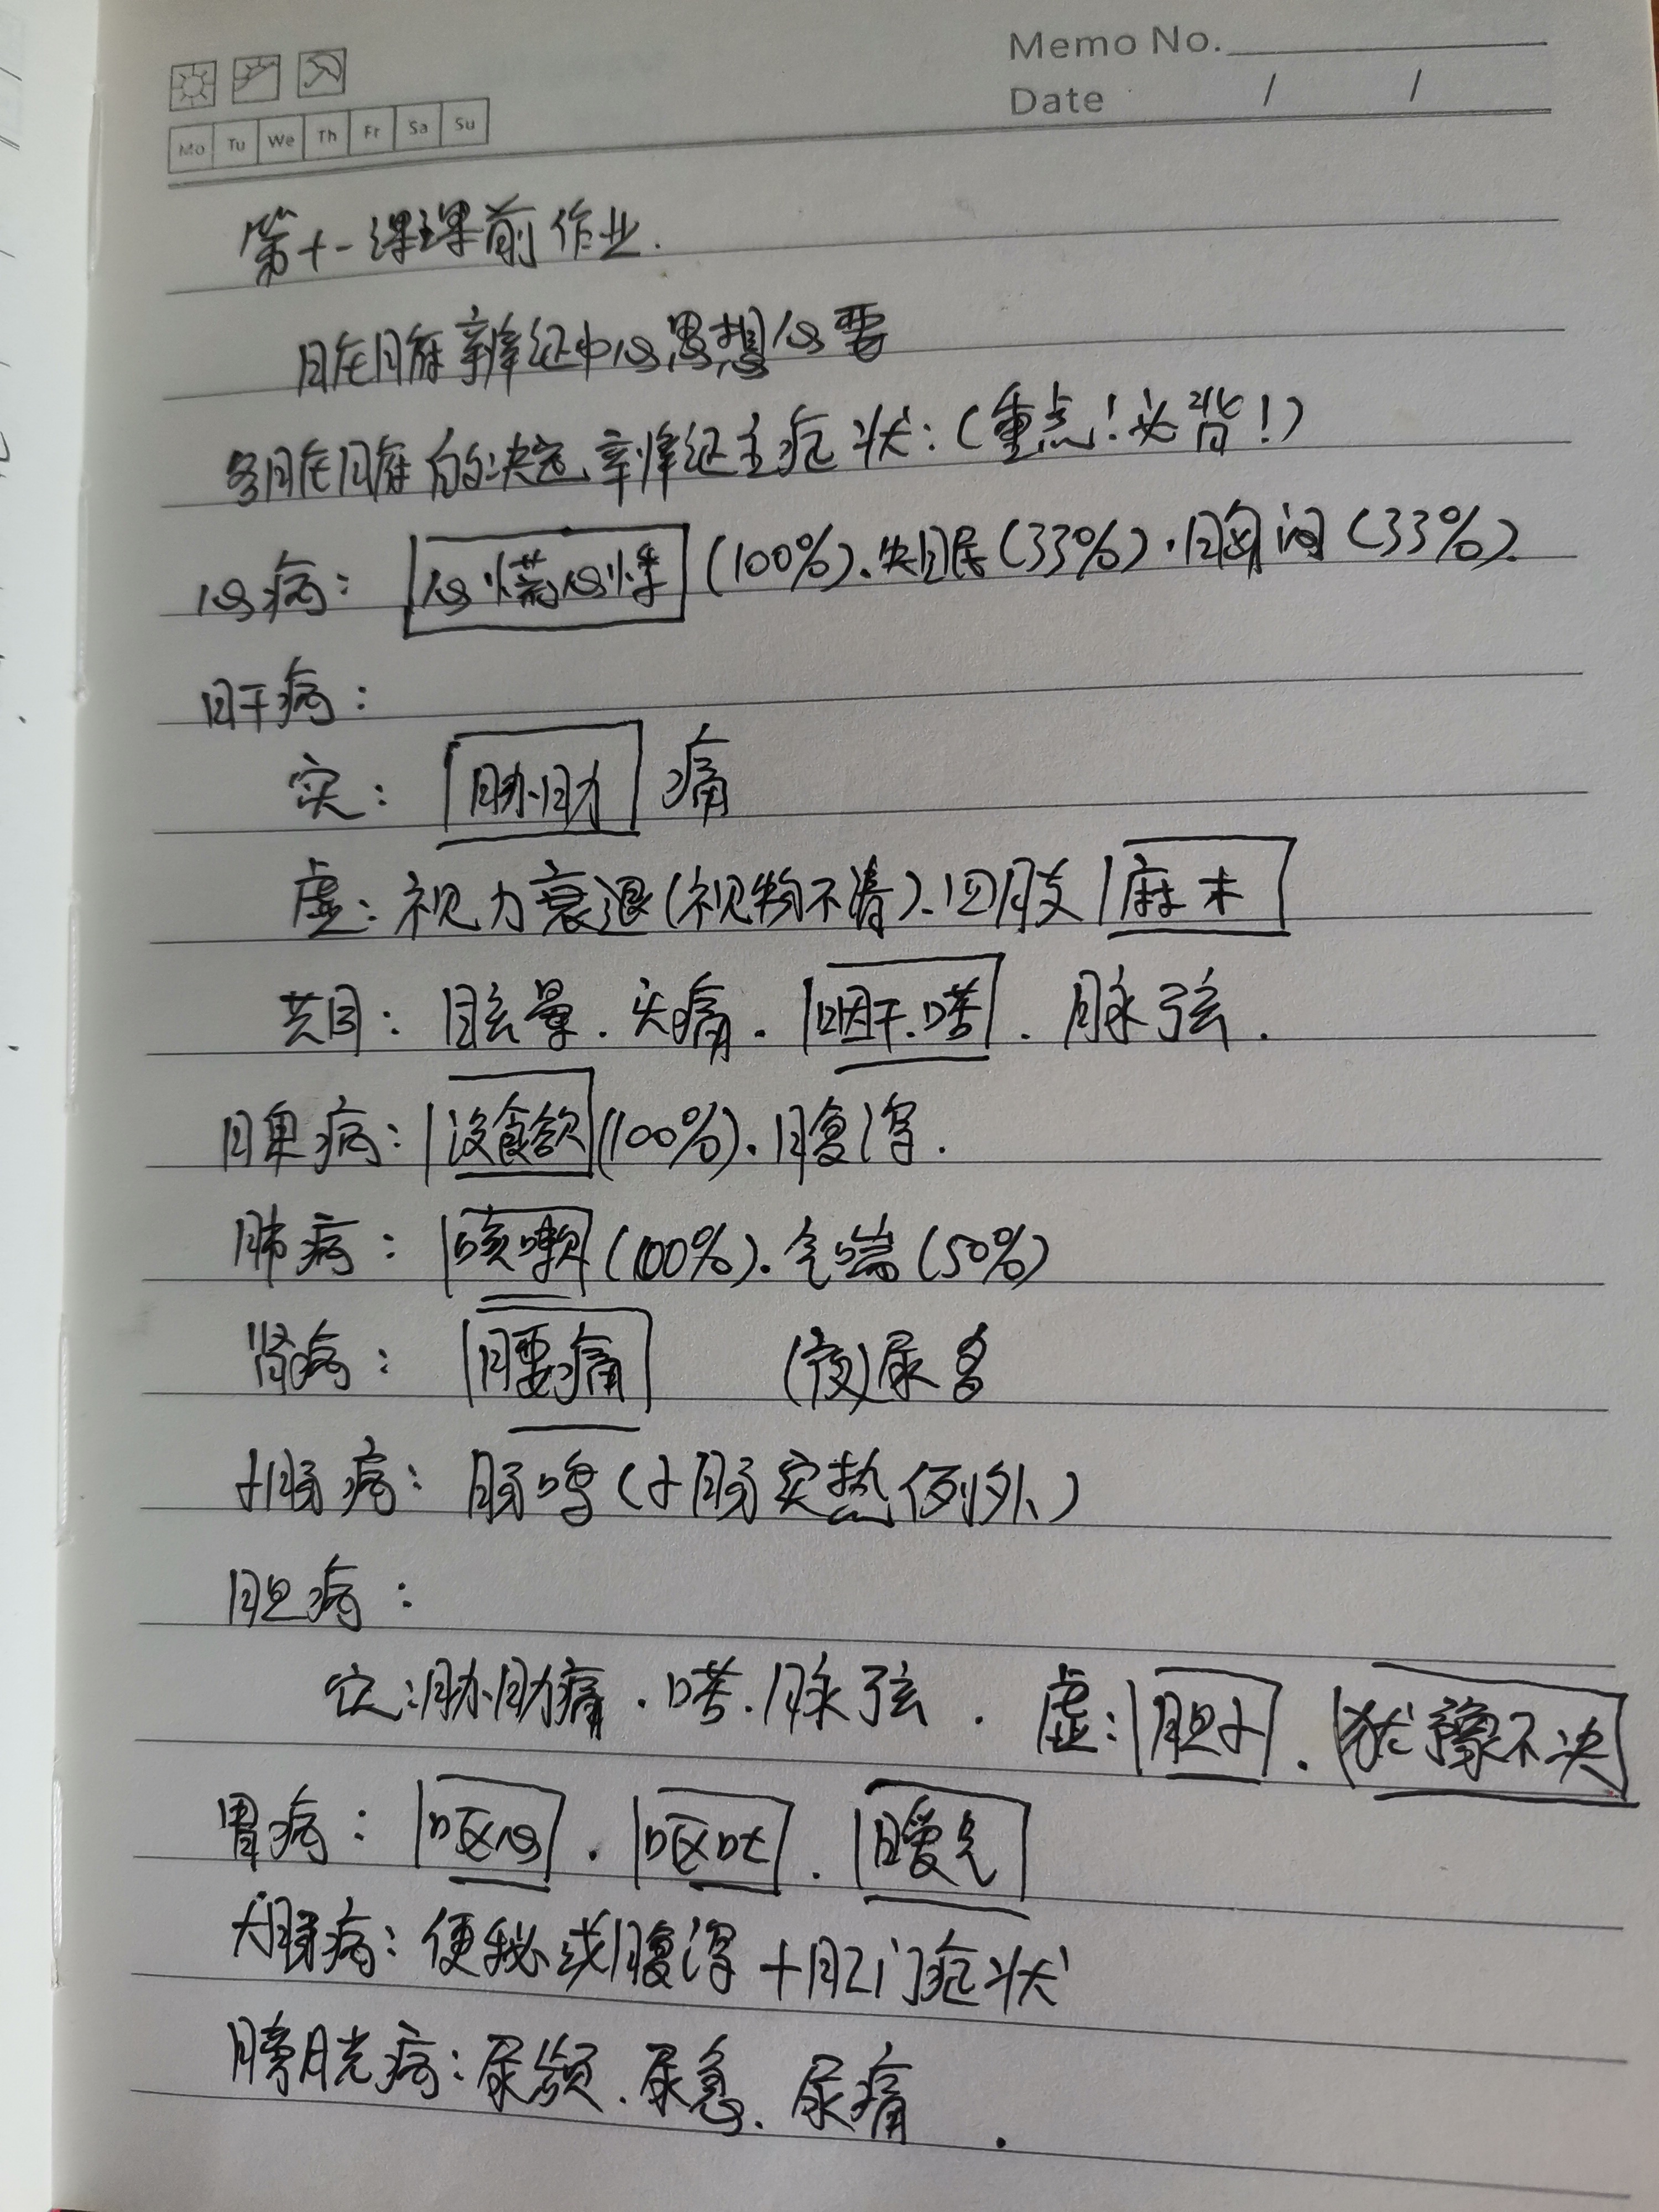 Memo No.
Date / /
Mo Tu We Th Fr Sa Su
第十一课课前作业.
脏腑辨证中心思想心要
各脏腑的决定辨证主症状:(重点!必背!)
心病: 心慌心悸(100%).失眠(33%).胸闷(33%).
肝病:
实: 胁肋痛
虚: 视力衰退(视物不清).四肢麻木
共同: 眩晕.头痛.咽干.口苦.脉弦.
脾病: 没食欲(100%).腹泻.
肺病: 咳嗽(100%).气喘(50%)
肾病: 腰痛 (夜)尿多
小肠病: 肠鸣(小肠实热例外)
胆病:
实:胁肋痛.口苦.脉弦. 虚:胆小.犹豫不决
胃病: 恶心.呕吐.嗳气
大肠病: 便秘或腹泻+肛门症状
膀胱病: 尿频.尿急.尿痛.